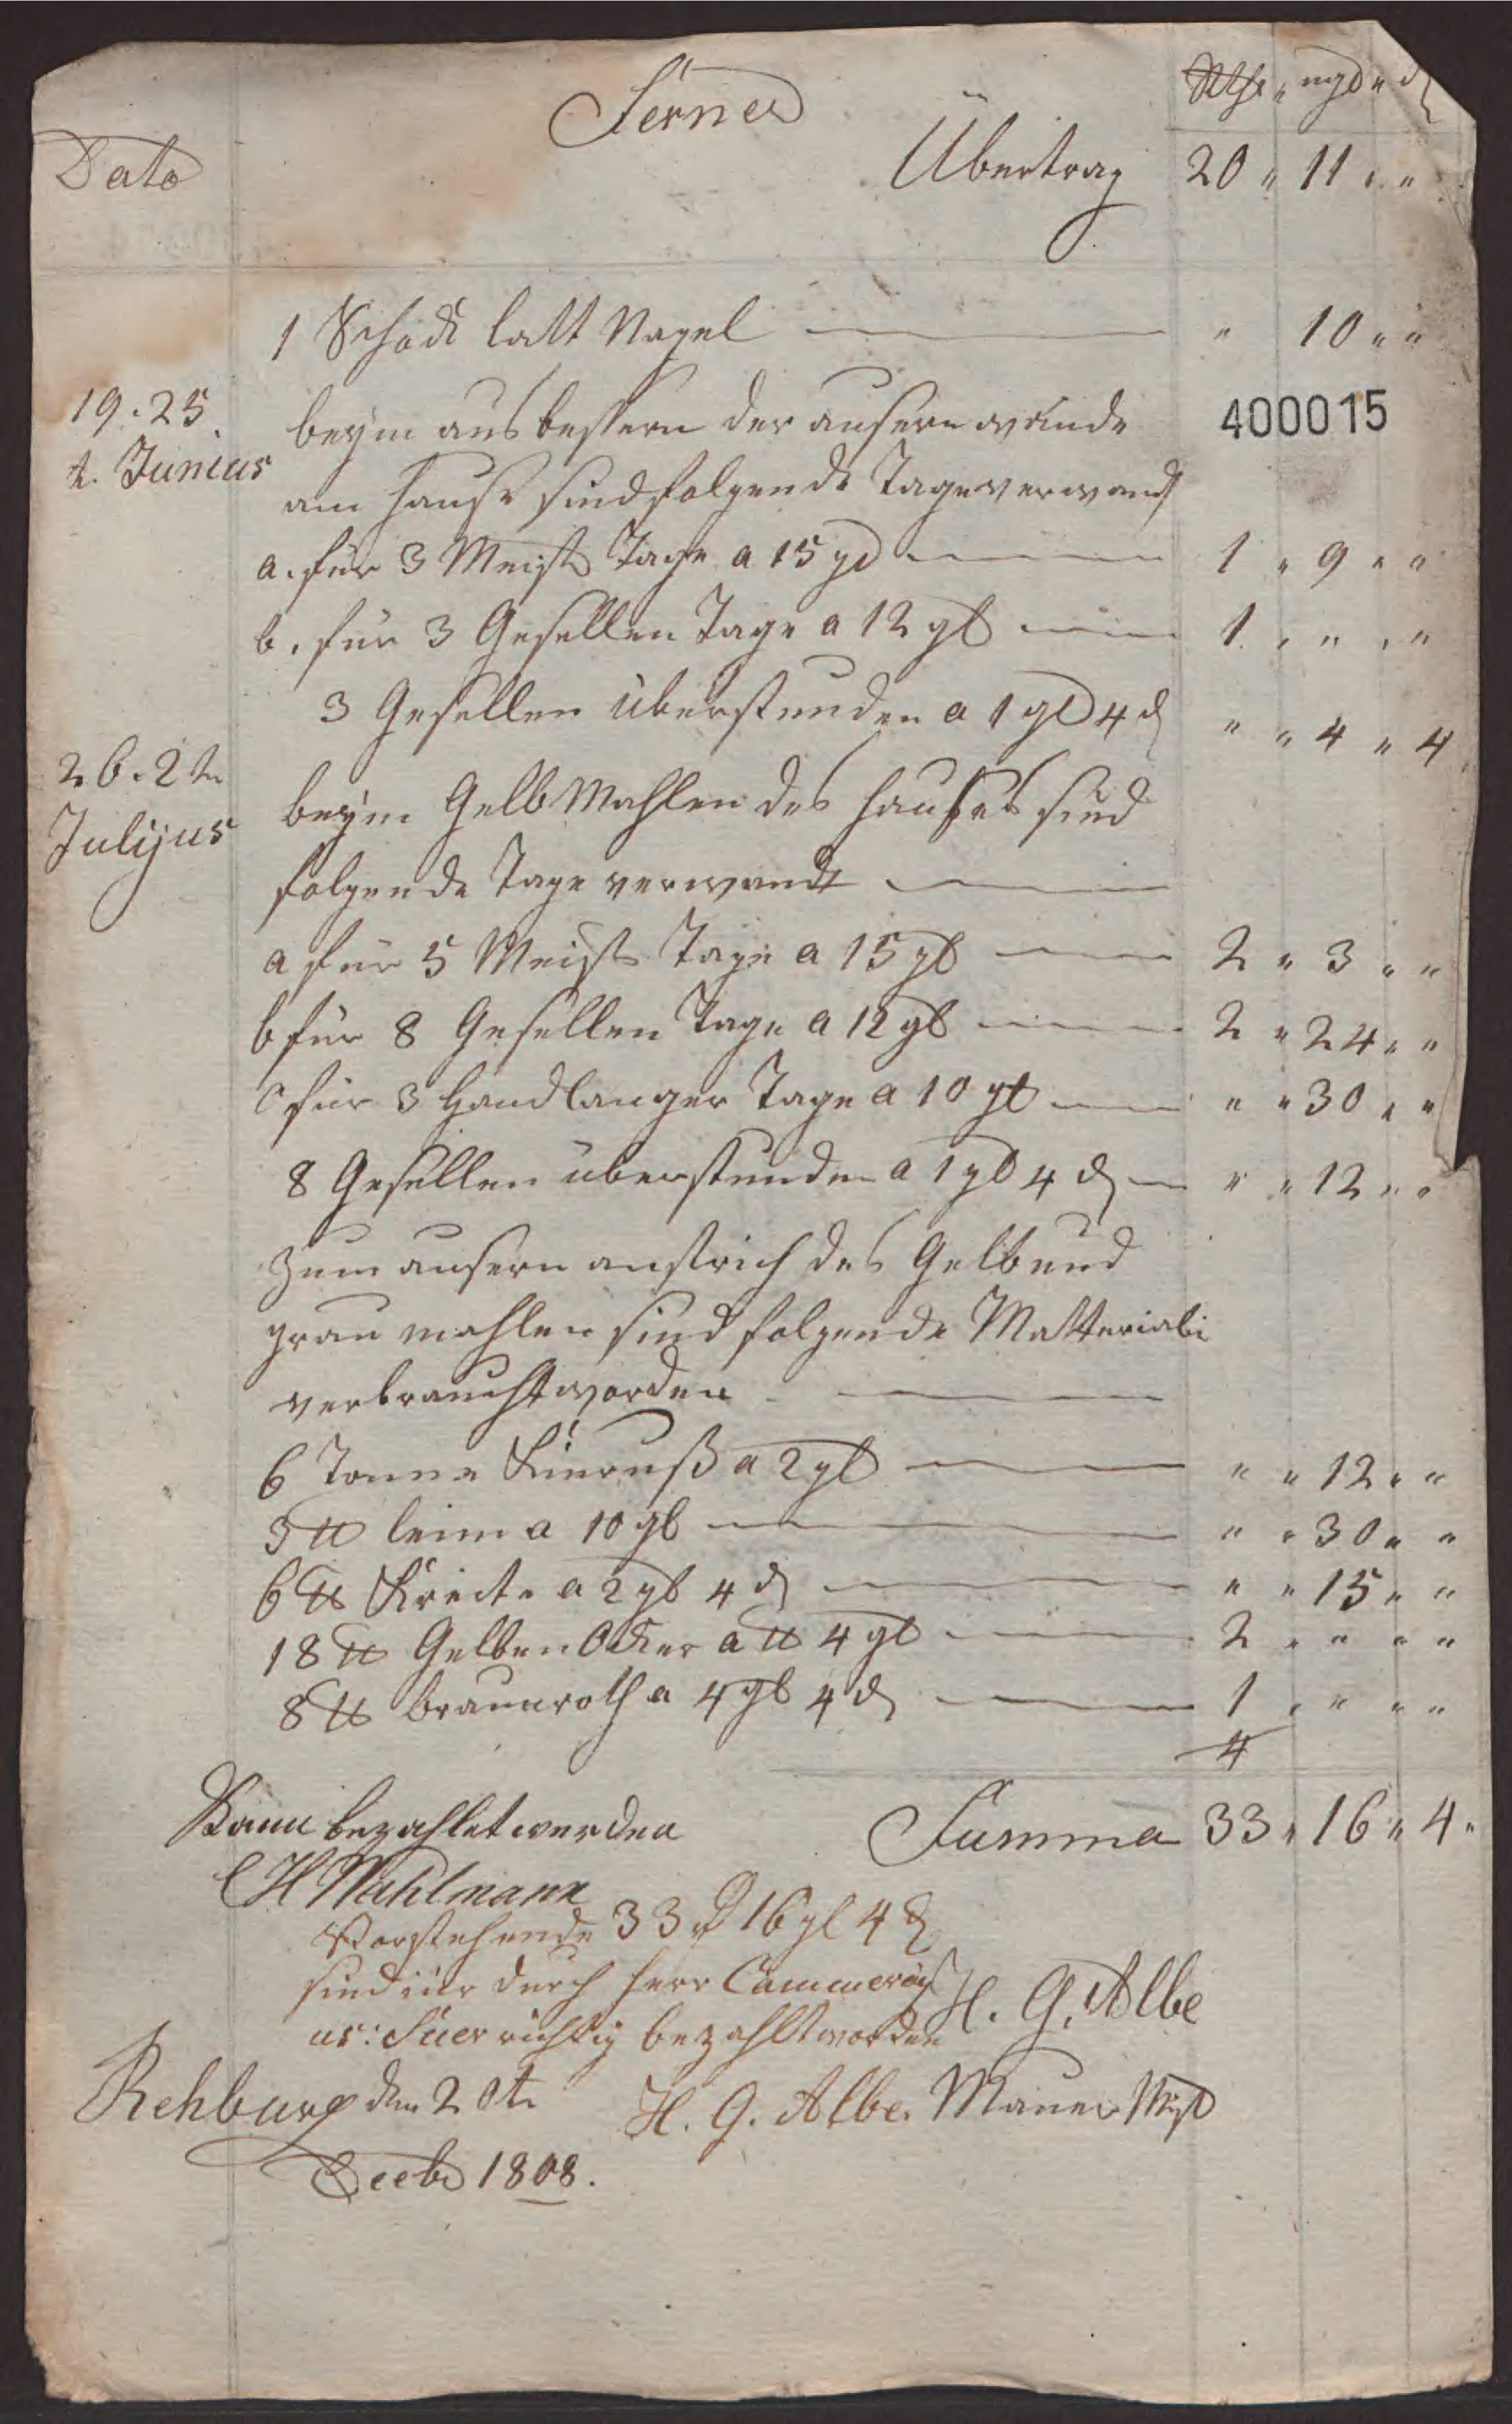 Ferner
Rthr " mgl " d
Dato
Übertrag 20 " 11 " "
1 Schock latt Nagel " 10 " "
19. 25
t. Junius
beym aus bessern der ausern wände
400015
am Hause sind folgende Tage verwand
a. für 3 Meist Tage a 15 gl 1 " 9 " "
b. für 3 Gesellen Tage a 12 gl 1 " " " "
3 Gesellen überstunden a 1 gl 4 d " " 4 " 4
26. 2 tn
Julijus
beym Gelb Mahlen des Hauses sind
folgende Tage verwandt
a für 5 Meist Tage a 15 gl 2 " 3 " "
b für 8 Gesellen Tage a 12 gl 2 " 24 " "
c für 3 Handlanger Tage a 10 gl " " 30 " "
8 Gesellen überstunden a 1 gl 4 d " " 12 " "
Zum ausern anstrich des Gelb und
grau mahlen sind folgende Matteriali
verbraucht worden
6 Tonne Kinruß a 2 gl " " 12 " "
3 ℔ leim a 10 gl " " 30 " "
6 ℔ Kreite a 2 gl 4 d " " 15 " "
18 ℔ Gelben Ocker a ℔ 4 gl 2 " " " "
8 ℔ braunroth a 4 gl 4 d 1 " " " "
4
Kann bezahlet werden
Summa 33 " 16 " 4 "
C H Wahlmann
Vorstehende 33 rt 16 gl 4 d
sind mir durch Herr Cammerari
us: Süer richtig bezahlt worden
H. G. Albe
Rehburg den 20 tn
H. G. Albe. Mauer Mst
Decbr 1808.